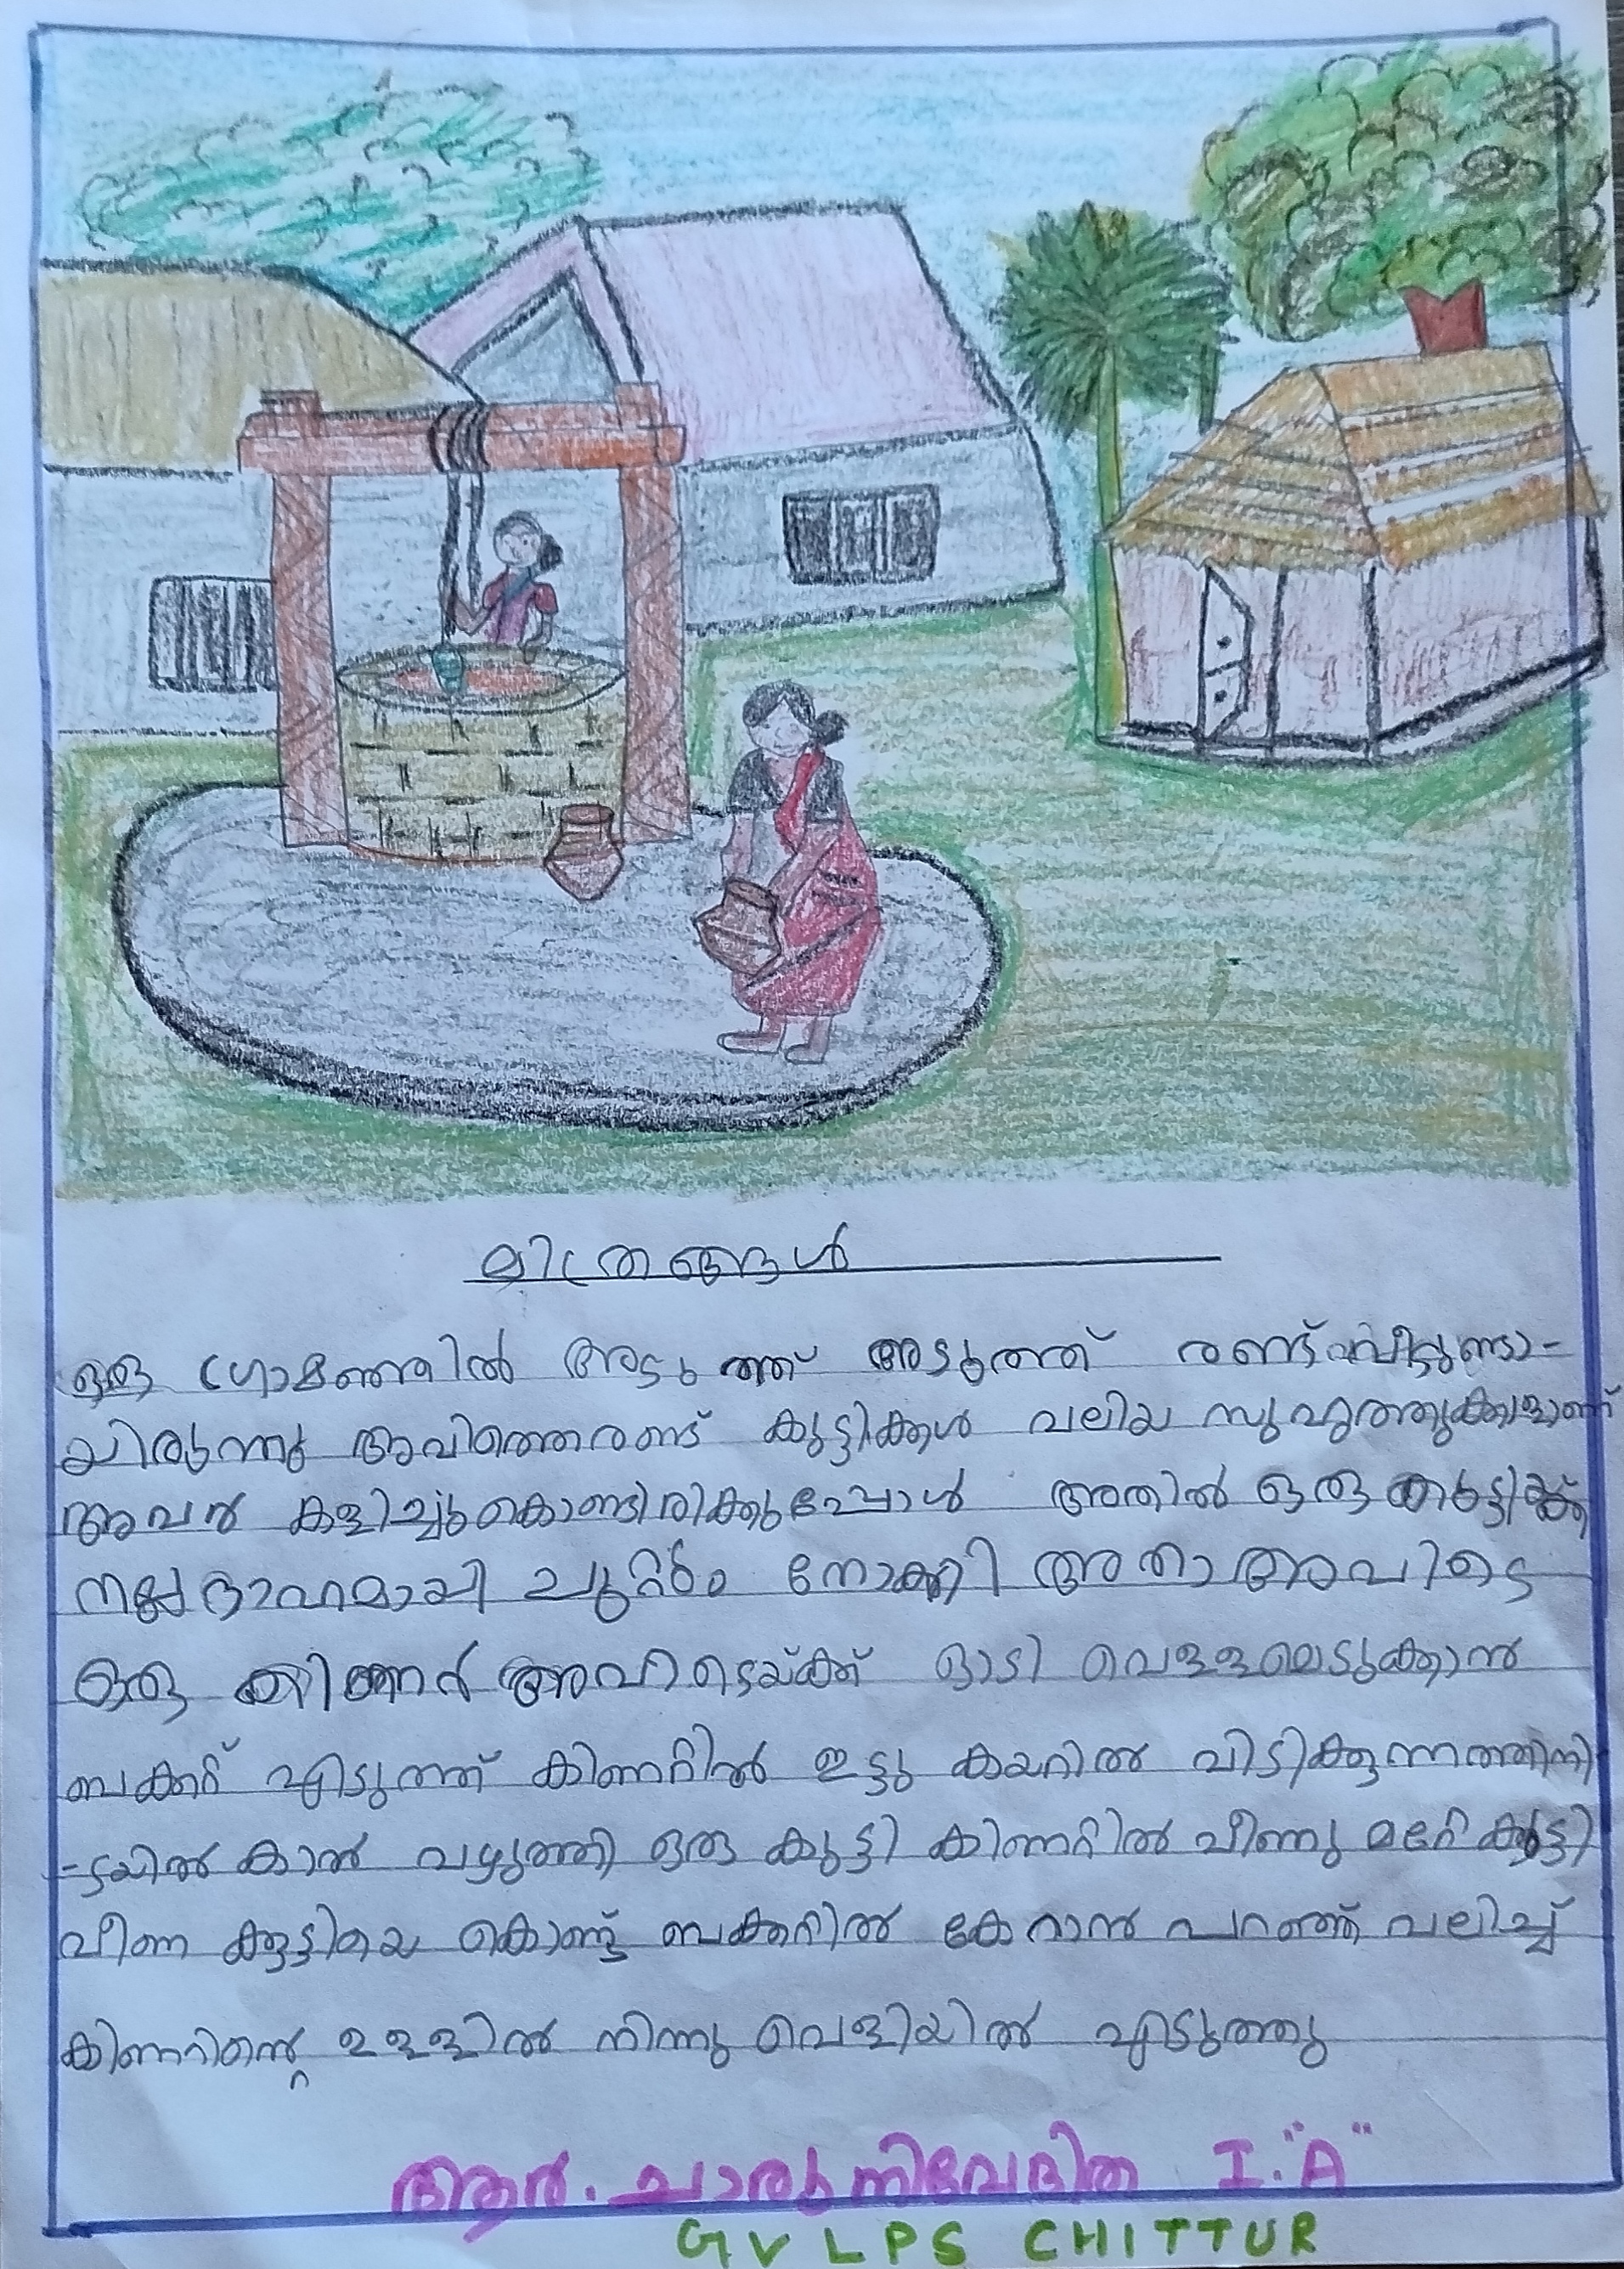 മിത്രങ്ങൾ
ഒരു ഗ്രാമത്തിൽ അടുത്ത് അടുത്ത് രണ്ട് വീടുണ്ടാ-
യിരുന്നു അവിത്തെരണ്ട് കുട്ടികൾ വലിയ സുഹൃത്തുക്കളാണ്
അവർ കളിച്ചുകൊണ്ടിരിക്കുമ്പോൾ അതിൽ ഒരു കുട്ടിക്ക്
നല്ല ദാഹമായി ചുറ്റും നോക്കി അതാ അവിടെ
ഒരു കിണർ അവിടെയ്ക്ക് ഓടി വെള്ളമെടുക്കാൻ
ബക്കറ്റ് എടുത്ത് കിണറ്റിൽ ഇട്ടു കയറിൽ പിടിക്കുന്നത്തിനി
-ടയിൽ കാൽ വഴുത്തി ഒരു കുട്ടി കിണറ്റിൽ വീണു മറ്റേ കുട്ടി
വീണ കുട്ടിയെ കൊണ്ട് ബക്കറ്റിൽ കേറാൻ പറഞ്ഞ് വലിച്ച്
കിണറിന്റെ ഉള്ളിൽ നിന്നു വെളിയിൽ എടുത്തു
ആർ. ചാരുനിവേദിത I. "A"
GVLPS CHITTUR